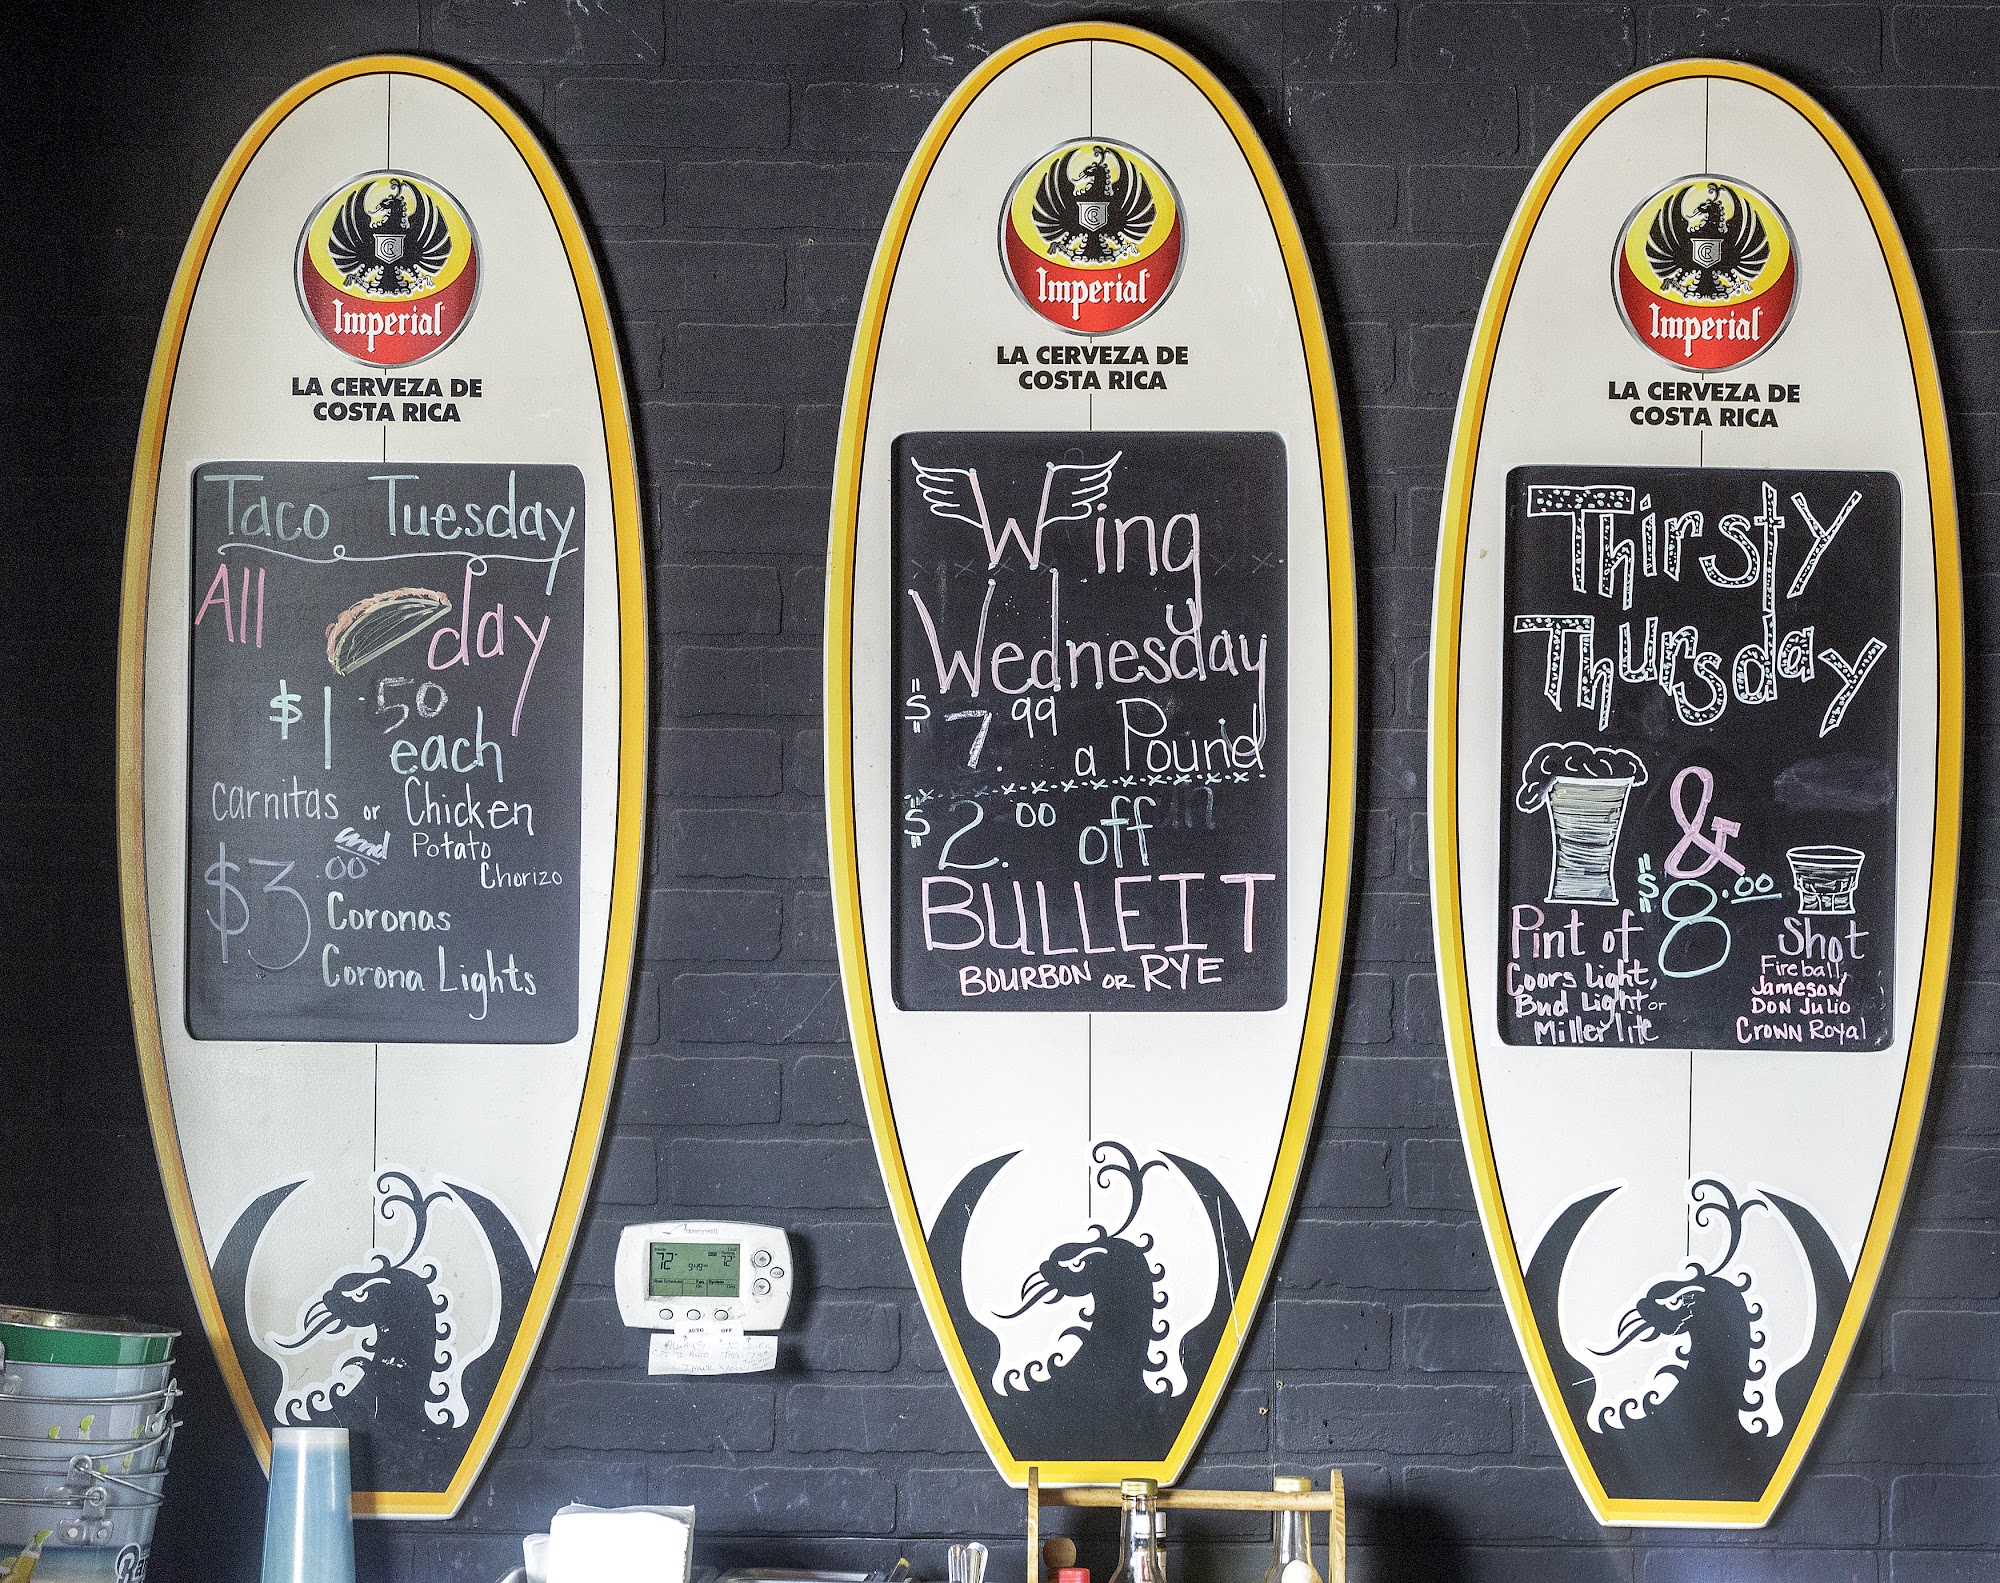 Imperial
LA CERVEZA DE
COSTA RICA
Taco Tuesday
All day
$1.50
each
Carnitas or Chicken
and Potato
Chorizo
$3.00
Coronas
Corona Lights
Imperial
LA CERVEZA DE
COSTA RICA
Wing
Wednesday
$7.99 a Pound
$2.00 off
BULLEIT
BOURBON OR RYE
Imperial
LA CERVEZA DE
COSTA RICA
Thirsty
Thursday
&
$8.00
Pint of
Coors Light,
Bud Light or
Miller lite
Shot
Fireball,
Jameson
DON JULIO
CROWN ROYAL
Honeywell
72° 72°
9:49
AUTO OFF
THANK YOU